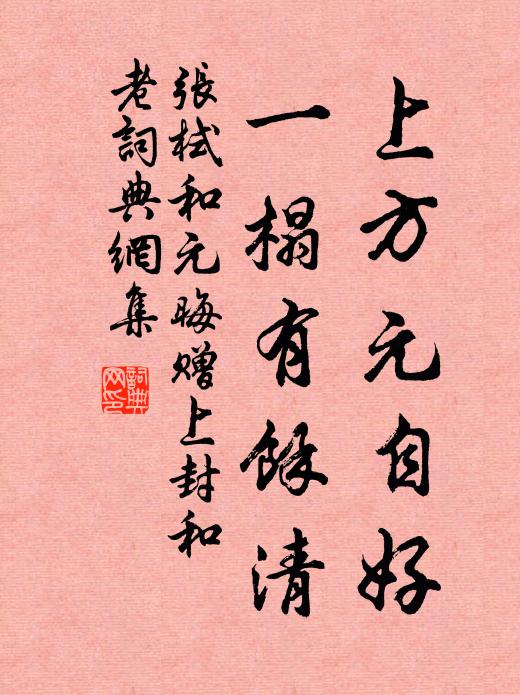 上方元自好
一榻有餘清
張栻和元晦贈上封和
老詞典網集
詞典網印